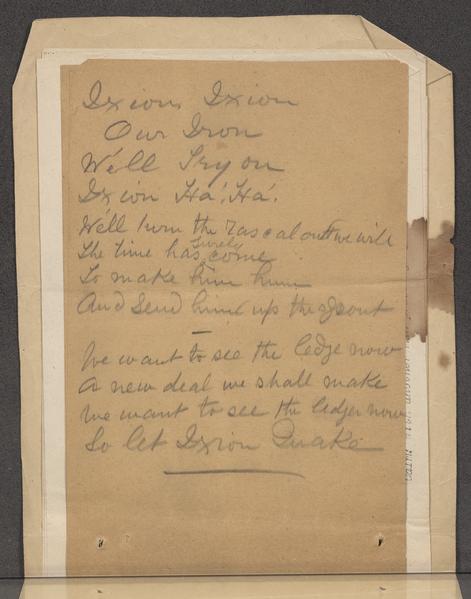 Ixion, Ixion
Our Iron
We'll Try on
Ixion Ha! Ha!
We'll turn the rascal out we will
The time has surely come
To make him hum
And send him up the spout
We want to see the ledge now
A new deal we shall make
We want to see the ledger now
So let Ixion Quake